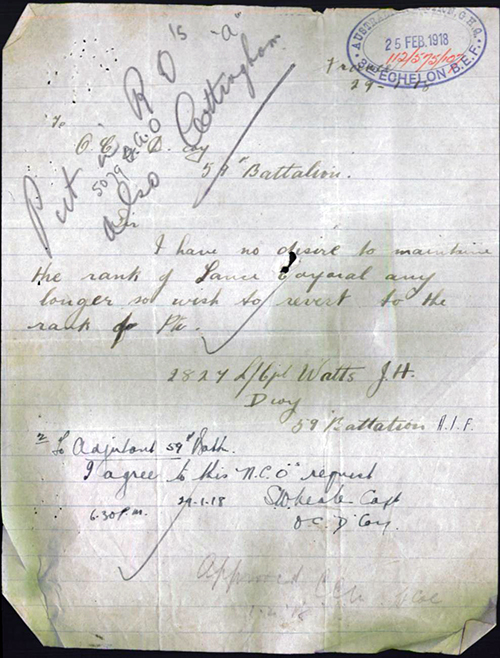 AUSTRALIAN
25 FEB. 1918
112/575/107
3RD ECHELON B.E.F.
France
29-1-18
Put in R O's "a"
5079 D.A.O
also Cottingham
To
O.C. D. Coy
59th Battalion.
Sir
I have no desire to maintain
the rank of Lance Corporal any
longer so wish to revert to the
rank of Pte.
2827 L/Cpl Watts J.H.
D Coy
59 Battalion A.I.F.
2 To Adjutant 59th Battn.
I agree to this "N.C.O's" request
29.1.18
Capt
6.30 P.M.
O.C. "D" Coy.
Approved